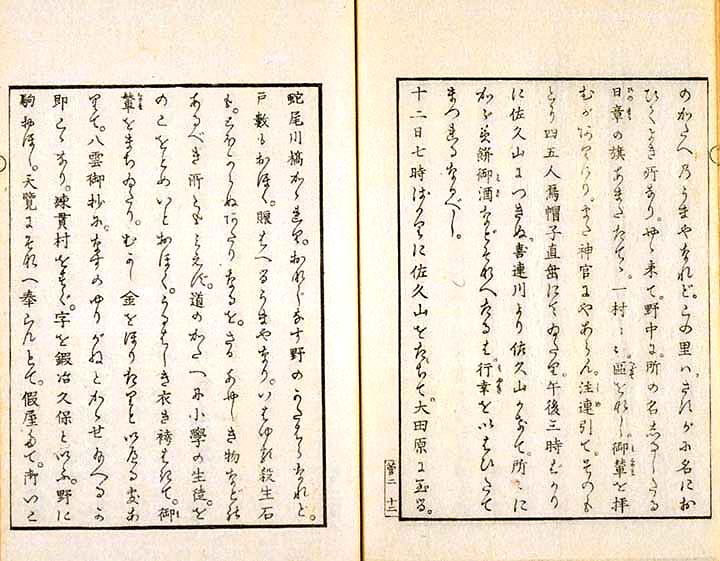 のかたへ乃うまやなれど。この里ハ。さすが尓名にお
ひろき所あり。やゝ来て。野中に。所の名志るしたる
日章の旗あまたたてゝ。一村 區を 御輦を拝
む また神官にやあらん。注連引て。そのも
とに四五人烏帽子直垂にてゐたり。午後三時ばかり
に佐久山につきぬ。喜連川より佐久山かけて。所々に
餅御酒などそなへたるは。行幸をいはひたて
まつれるなるべし。
十二日七時ばかりに佐久山をたちて。大田原に至る。
菅二 十二
蛇尾川橋かゝれり。おなじなす野の なれど。
戸數もおほく。賑はへるうまやなり。いはゆる殺生石
も。とほからぬあたりなるを。さるあやしき物などの
あるべき所ともみえず。道のかたへに小學の生徒。を
のこをとめいとおほく。うるはしき衣き袴はきて。御
輦をまちゐたり。むかし金をほりたりといへる處あ
りて。八雲御抄に。なすのゆりがねとかゝせたまへる
即こゝなり。練貫村をすぐ。字を鍛冶久保といふ。野に
駒おほし。天覧にそなへ奉らんとて。假屋たて。